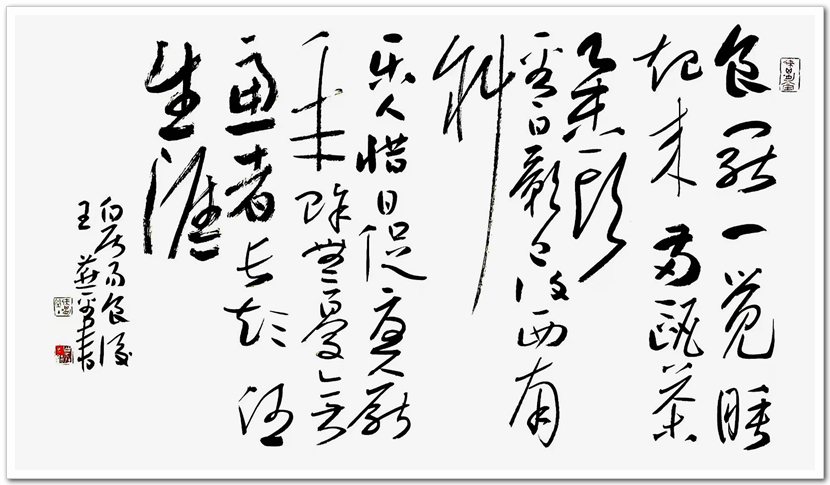 食罢一觉睡
起来两瓯茶
举头
看日影已复西南
斜
乐人惜日促忧人厌
年赊無憂無
樂者长短任
生涯
白居易食後
王書